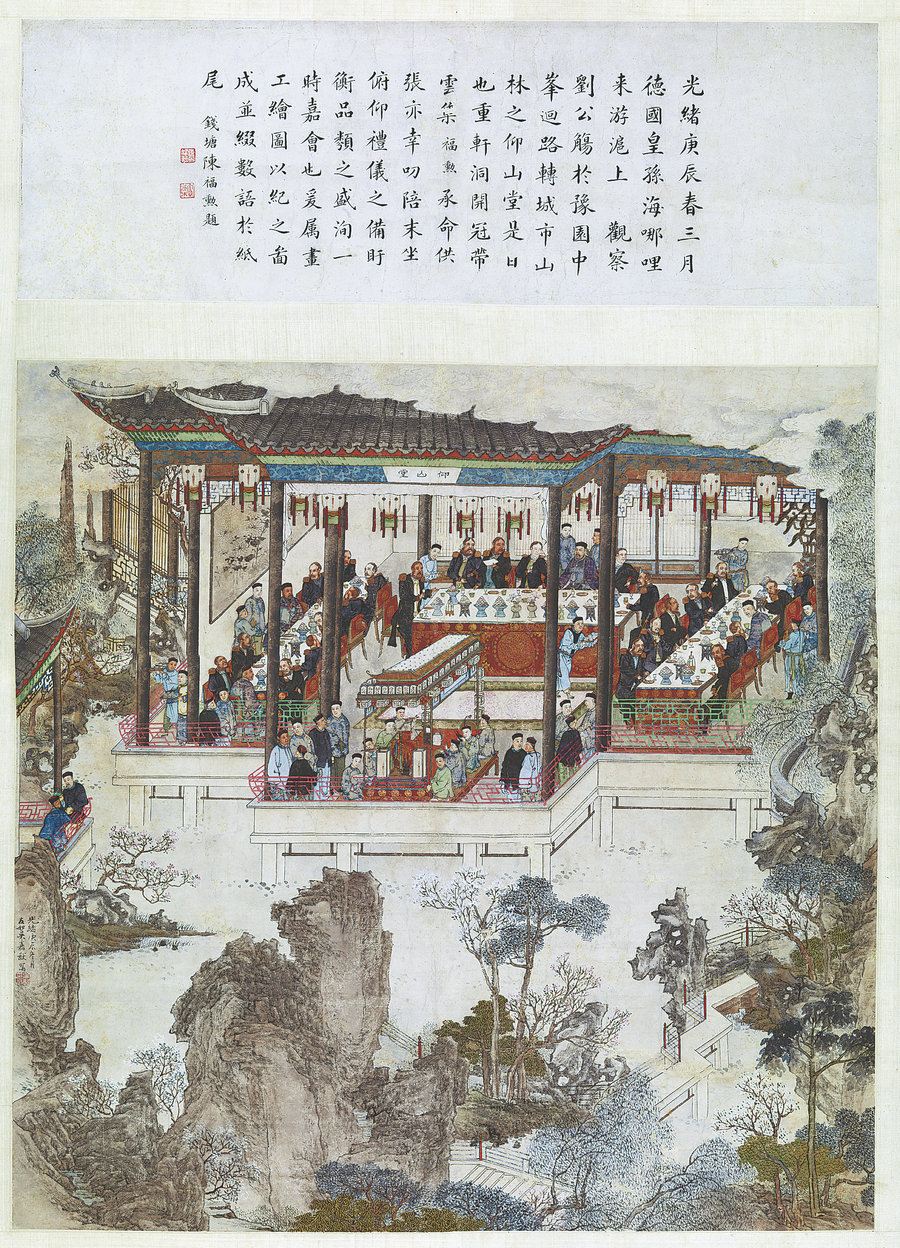 光緒庚辰春三月
德國皇孫海哪哩
来游滬上 觀察
劉公觴於豫園中
峯迴路轉城市山
林之仰山堂是日
也重軒洞開冠帶
雲集福勲承命供
張亦幸叨陪末坐
俯仰禮儀之備盱
衡品類之盛洵一
時嘉會也爰属畫
工繪圖以紀之啚
成並綴數語於紙
尾
錢塘陳福勲題
仰山堂
光緒庚辰
友如吳嘉猷寫